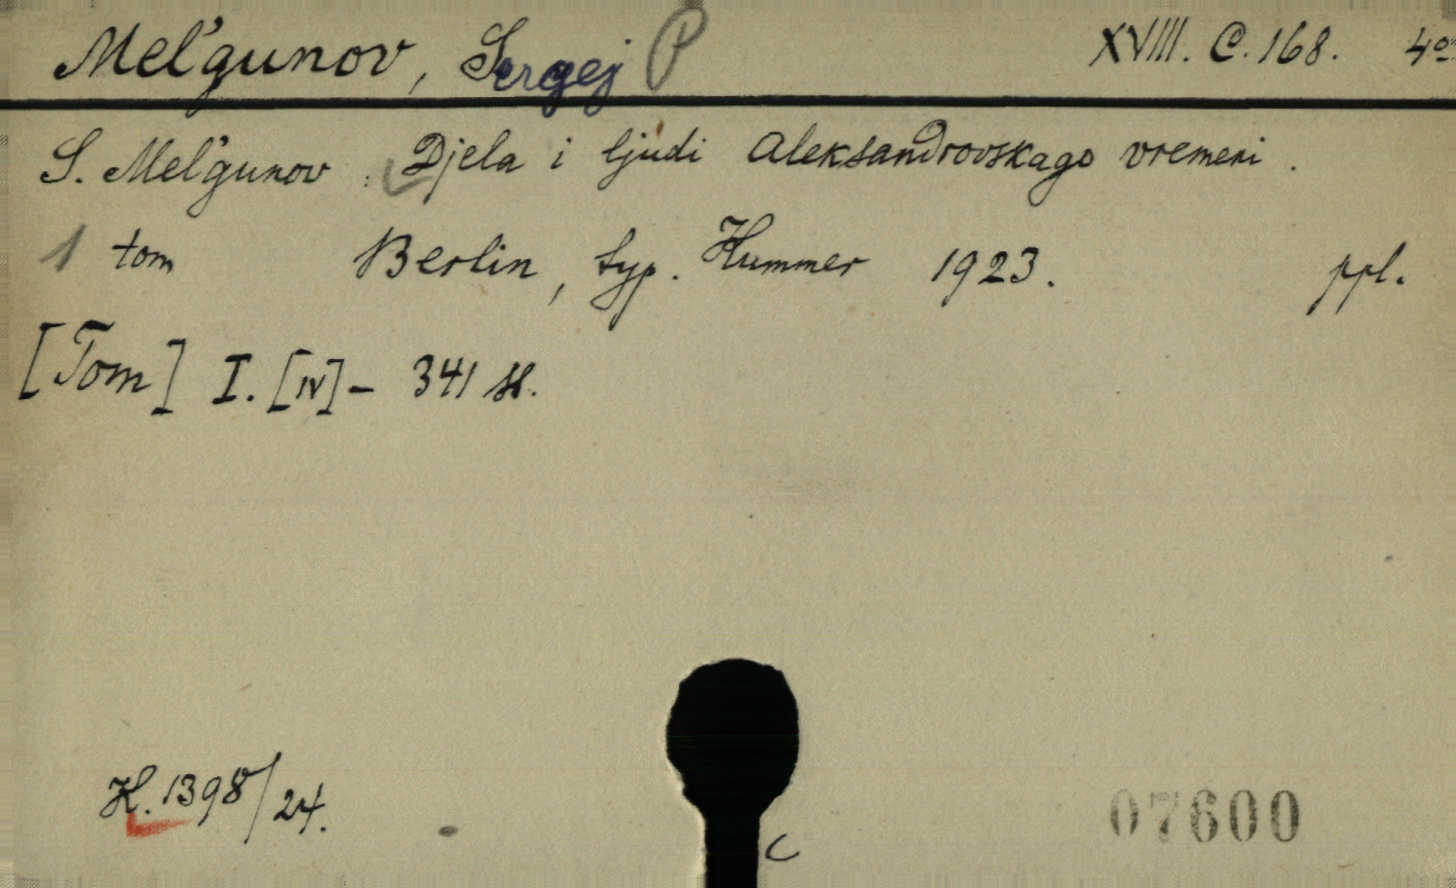 Mel'gunov, Sergej P XVIII. C. 168. 4º
S. Mel'gunov: Djela i ljudi Aleksandrovskago vremeni.
1 tom Berlin, typ. Hummer 1923. ppl.
[Tom] I. [IV] – 341 st.
K. 1398/24.
07600
C